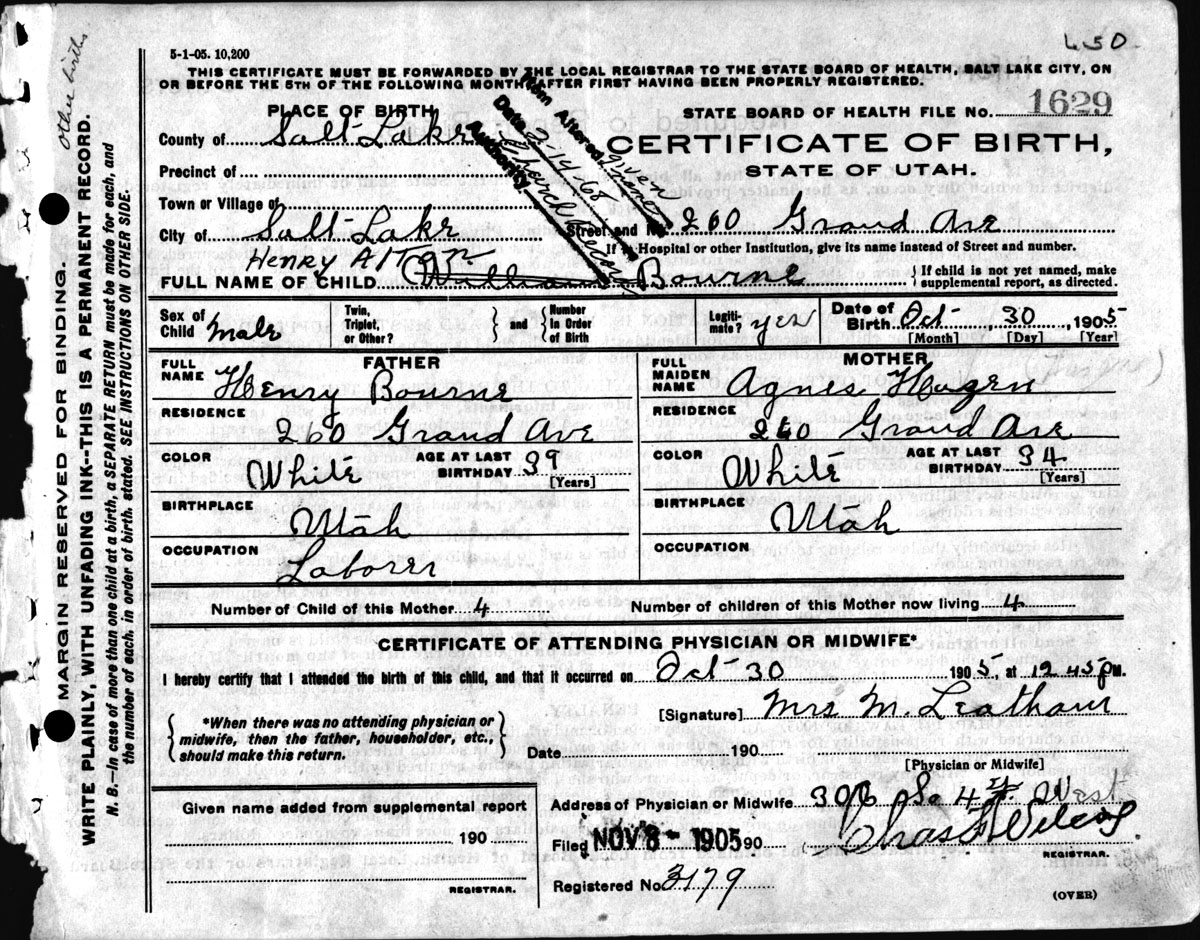 450
5-1-05. 10,200
THIS CERTIFICATE MUST BE FORWARDED BY THE LOCAL REGISTRAR TO THE STATE BOARD OF HEALTH, SALT LAKE CITY, ON
OR BEFORE THE 5TH OF THE FOLLOWING MONTH AFTER FIRST HAVING BEEN PROPERLY REGISTERED.
Other births
MARGIN RESERVED FOR BINDING.
WRITE PLAINLY, WITH UNFADING INK--THIS IS A PERMANENT RECORD.
N. B.—In case of more than one child at a birth, a SEPARATE RETURN must be made for each, and
the number of each, in order of birth, stated. SEE INSTRUCTIONS ON OTHER SIDE.
PLACE OF BIRTH
County of Salt Lake
Precinct of
Town or Village of
City of Salt Lake
Item Altered given name
Date 2-14-68
Authority Church Record
STATE BOARD OF HEALTH FILE No. 1629
CERTIFICATE OF BIRTH,
STATE OF UTAH.
Street and No. 260 Grand Ave
If in Hospital or other Institution, give its name instead of Street and number.
Henry Alton
FULL NAME OF CHILD William Bourne
If child is not yet named, make
supplemental report, as directed.
Sex of Child Male
Twin, Triplet, or Other?
and
Number in Order of Birth
Legiti- mate? yes
Date of Birth Oct 30, 1905
[Month] [Day] [Year]
FATHER
FULL NAME Henry Bourne
RESIDENCE
260 Grand Ave
COLOR White
AGE AT LAST BIRTHDAY 39
[Years]
BIRTHPLACE
Utah
OCCUPATION
Laborer
MOTHER
FULL MAIDEN NAME Agnes Hagen
RESIDENCE
260 Grand Ave
COLOR White
AGE AT LAST BIRTHDAY 34
(Years)
BIRTHPLACE
Utah
OCCUPATION
Number of Child of this Mother 4
Number of children of this Mother now living 4
CERTIFICATE OF ATTENDING PHYSICIAN OR MIDWIFE*
I hereby certify that I attended the birth of this child, and that it occurred on Oct 30 1905, at 12 45 PM.
*When there was no attending physician or
midwife, then the father, householder, etc.,
should make this return.
[Signature] Mrs M. Leatham
Date 190
[Physician or Midwife]
Given name added from supplemental report
190
REGISTRAR.
Address of Physician or Midwife So 4th West
Filed NOV 8 - 1905 90
REGISTRAR.
Registered No. 3179
(OVER)